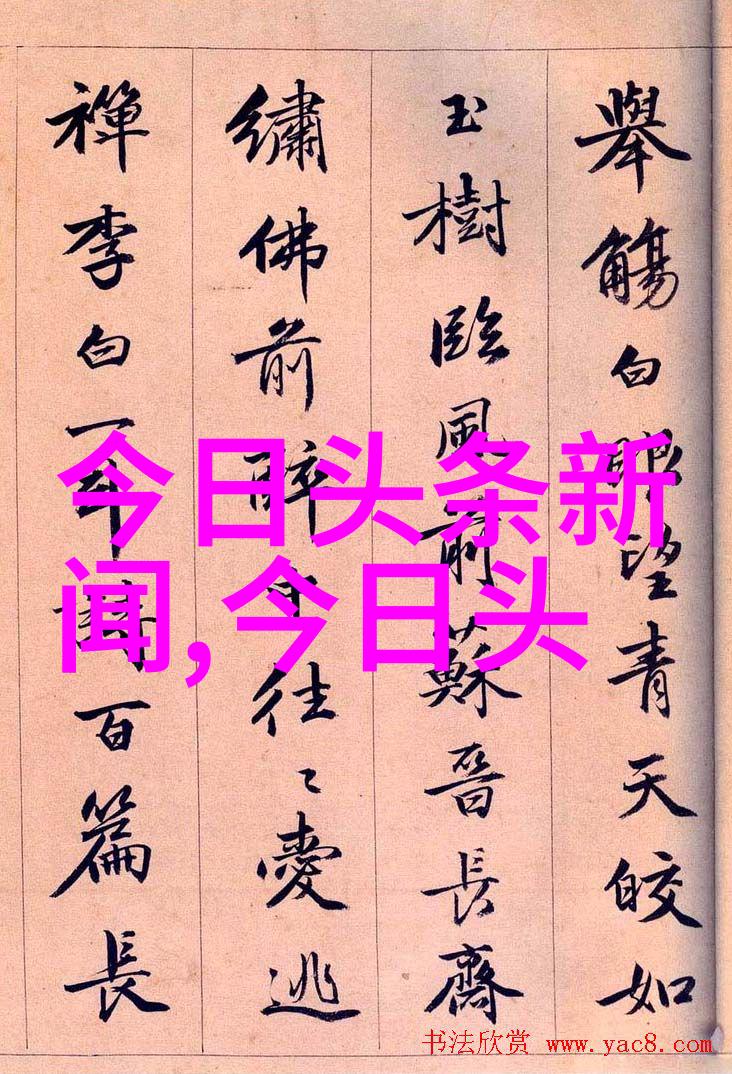 舉觴白眼望青天皎如
玉樹臨風前蘇晉長齋
繡佛前醉中往〻愛逃
禪李白一斗詩百篇長
今日头条新
闻,今日头
书法欣赏 www.yac8.com